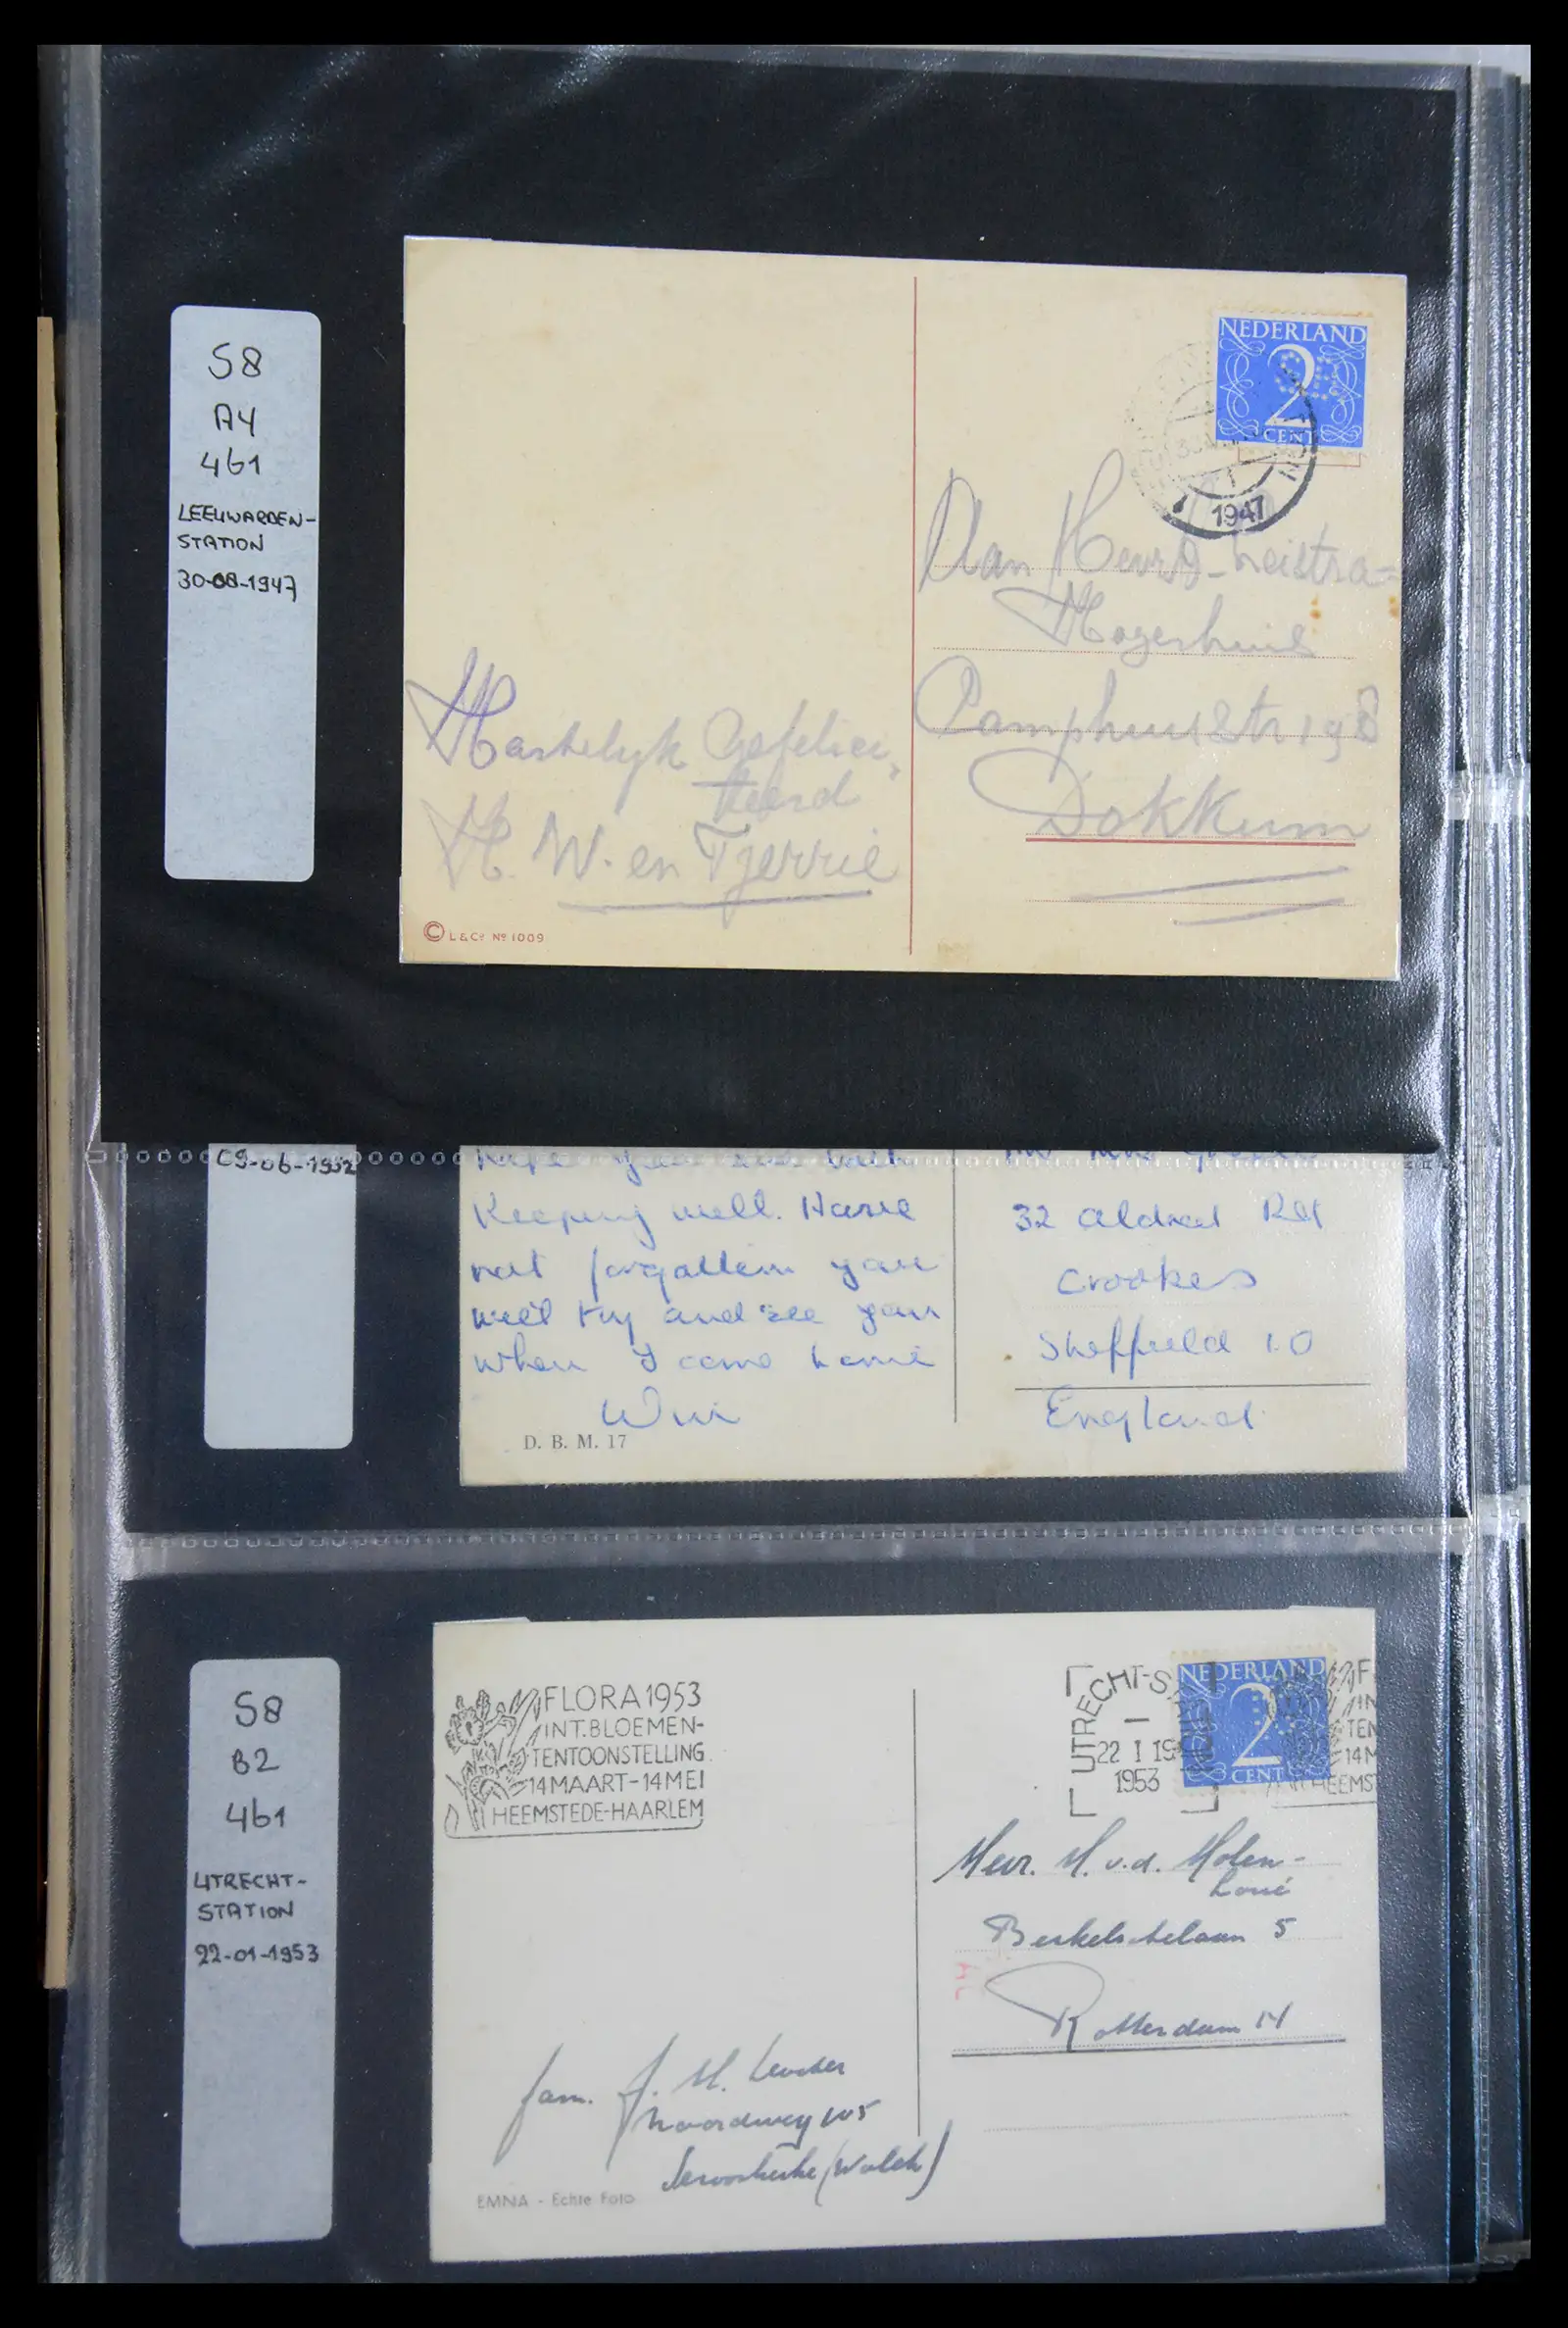 S8
A4
461
LEEUWARDEN-
STATION
30-08-1947
NEDERLAND
2
CENT
1947
Aan
Hogerhuis
198
Dokkum
Hartelijk Gefelici,
teerd
H. W. en Tjerrie
© L & Co No 1009
09-06-1952
Keeping well. Have
not forgotten you
well try and see you
when I come home
Win
D. B. M. 17
32 Rd
Crookes
Sheffield 10
England
S8
B2
461
UTRECHT-
STATION
22-01-1953
FLORA 1953
INT. BLOEMEN-
TENTOONSTELLING
14 MAART - 14 MEI
HEEMSTEDE-HAARLEM
UTRECHT-S
22 I 19
1953
NEDERLAND
2
CENT
F
IN
TEN
14 M
HEEMST
Mevr. M. v.d. Molen-
Loué
Berkelselaan 5
Rotterdam 14
fam. J. M.
Noordweg 105
Serooskerke (Walch)
EMNA - Echte Foto